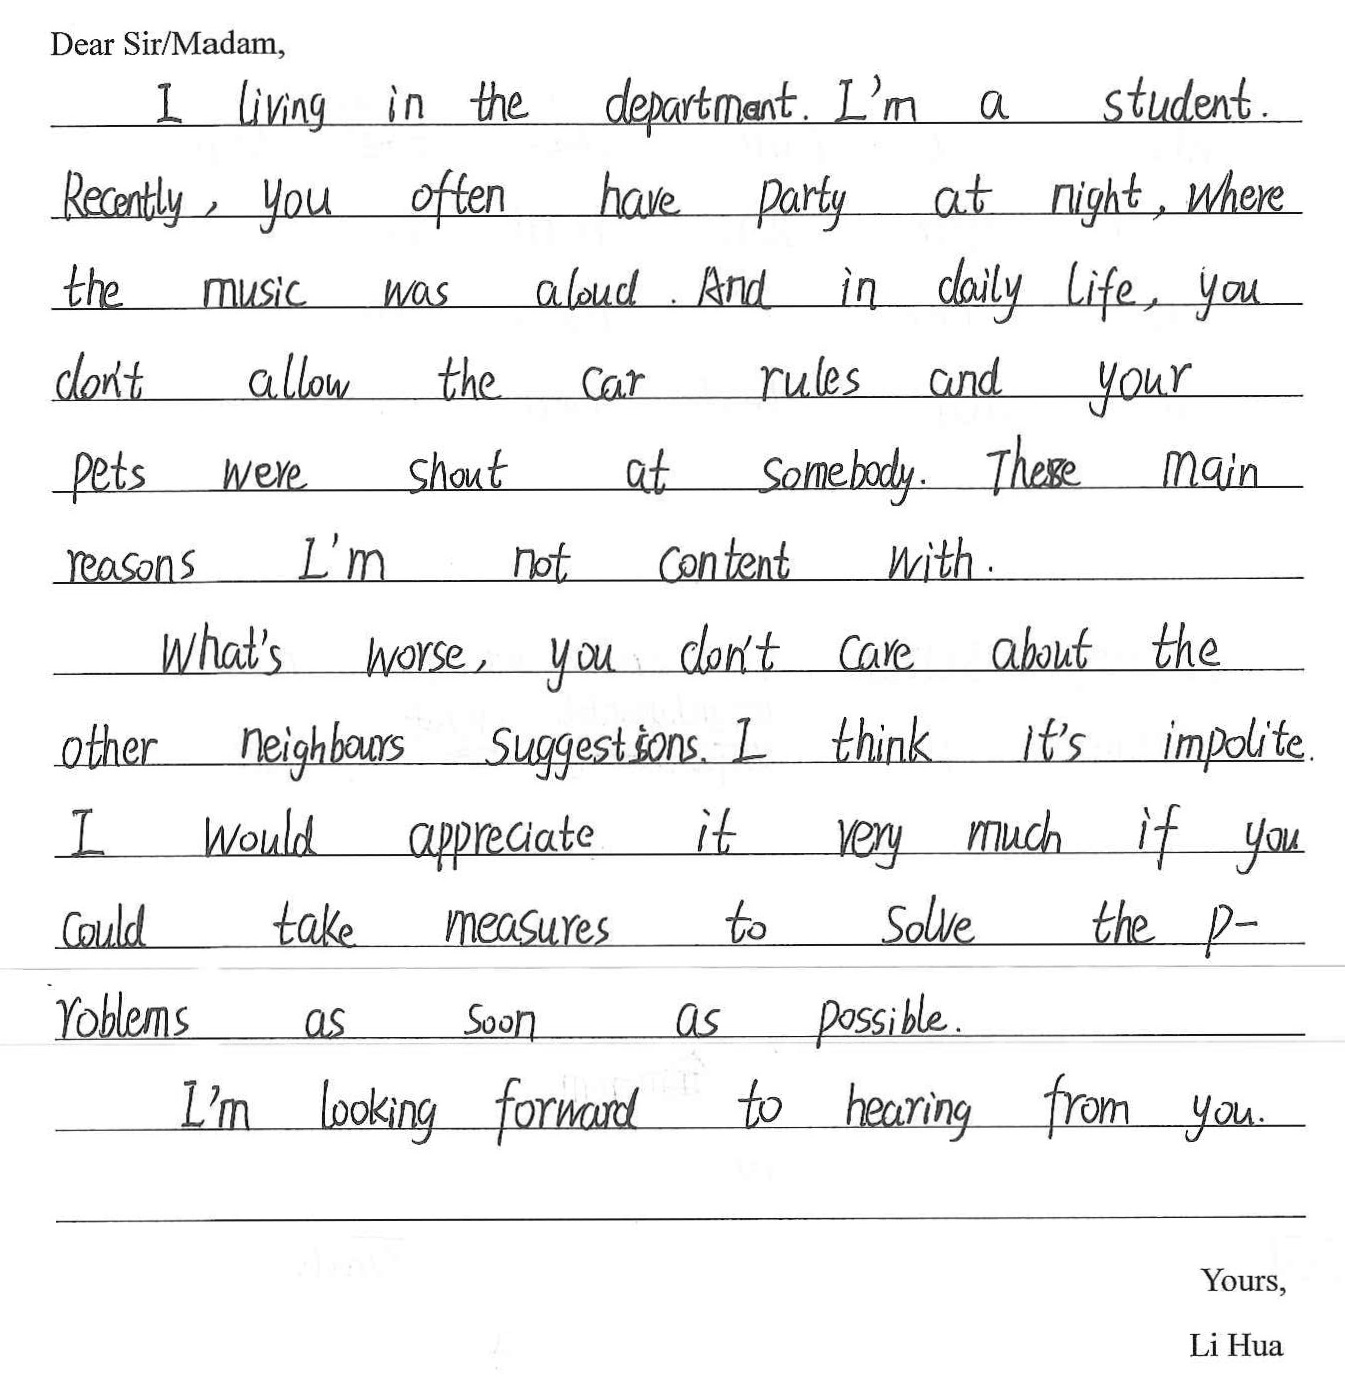 Dear Sir/Madam,
I living in the department. I'm a student.
Recently, you often have party at night, where
the music was aloud. And in daily life, you
don't allow the car rules and your
pets were shout at somebody. These main
reasons I'm not content with.
What's worse, you don't care about the
other neighbours suggestions. I think it's impolite.
I would appreciate it very much if you
could take measures to solve the p-
roblems as soon as possible.
I'm looking forward to hearing from you.
Yours,
Li Hua